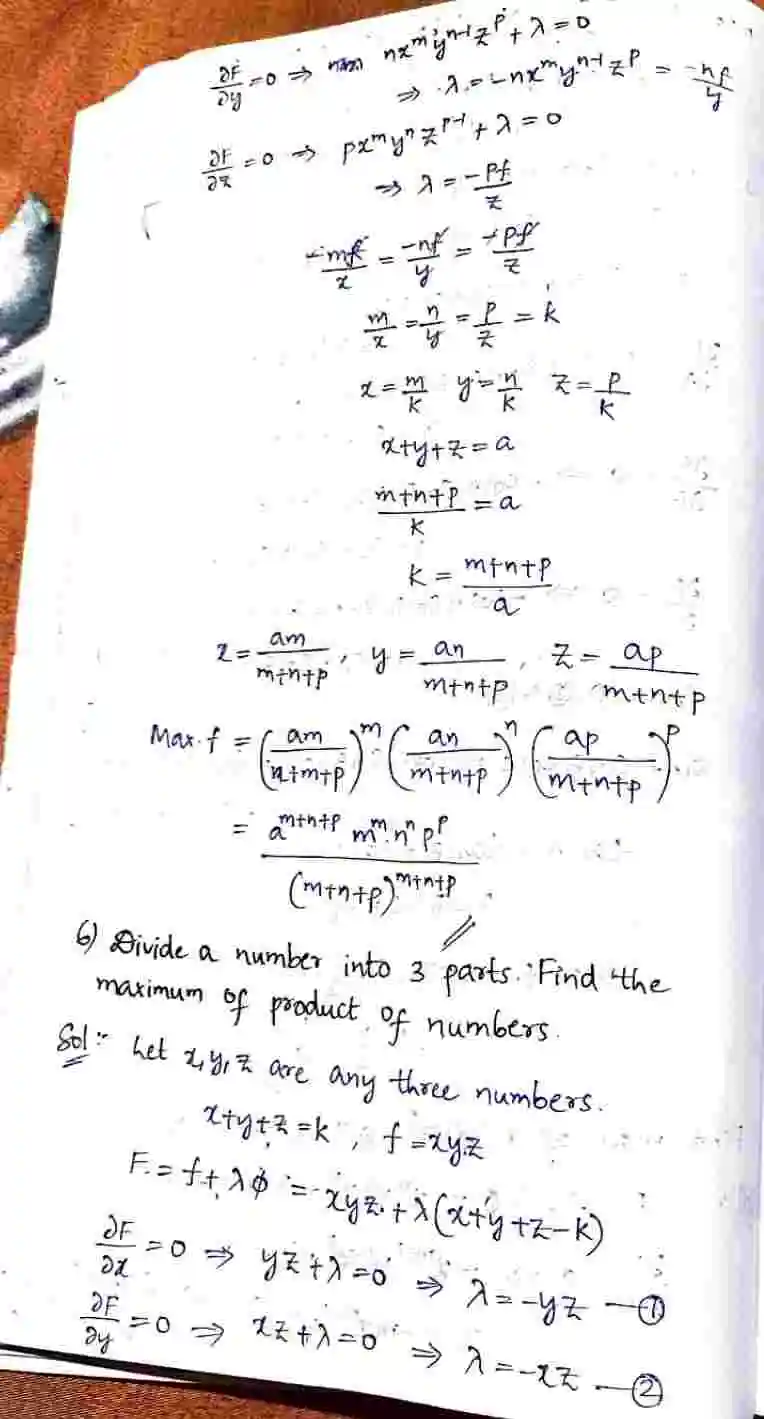 ∂F/∂y = 0 ⇒ nx^m y^(n-1) z^p + λ = 0
⇒ λ = -nx^m y^(n-1) z^p = -nf/y
∂F/∂z = 0 ⇒ px^m y^n z^(p-1) + λ = 0
⇒ λ = -Pf/z
-mf/x = -nf/y = -pf/z
m/x = n/y = p/z = k
x = m/k y = n/k z = p/k
x+y+z = a
(m+n+p)/k = a
k = (m+n+p)/a
x = am/(m+n+p), y = an/(m+n+p), z = ap/(m+n+p)
Max. f = (am/(n+m+p))^m (an/(m+n+p))^n (ap/(m+n+p))^p
= a^(m+n+p) m^m n^n p^p / (m+n+p)^(m+n+p)
6) Divide a number into 3 parts. Find the
maximum of product of numbers.
Sol:- Let x, y, z are any three numbers.
x+y+z = k, f = xyz
F = f + λφ = xyz + λ(x+y+z-k)
∂F/∂x = 0 ⇒ yz + λ = 0 ⇒ λ = -yz —①
∂F/∂y = 0 ⇒ xz + λ = 0 ⇒ λ = -xz —②